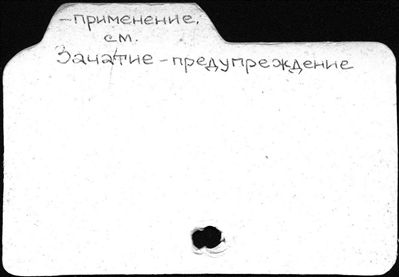 -применение,
см.
Зачатие - предупреждение